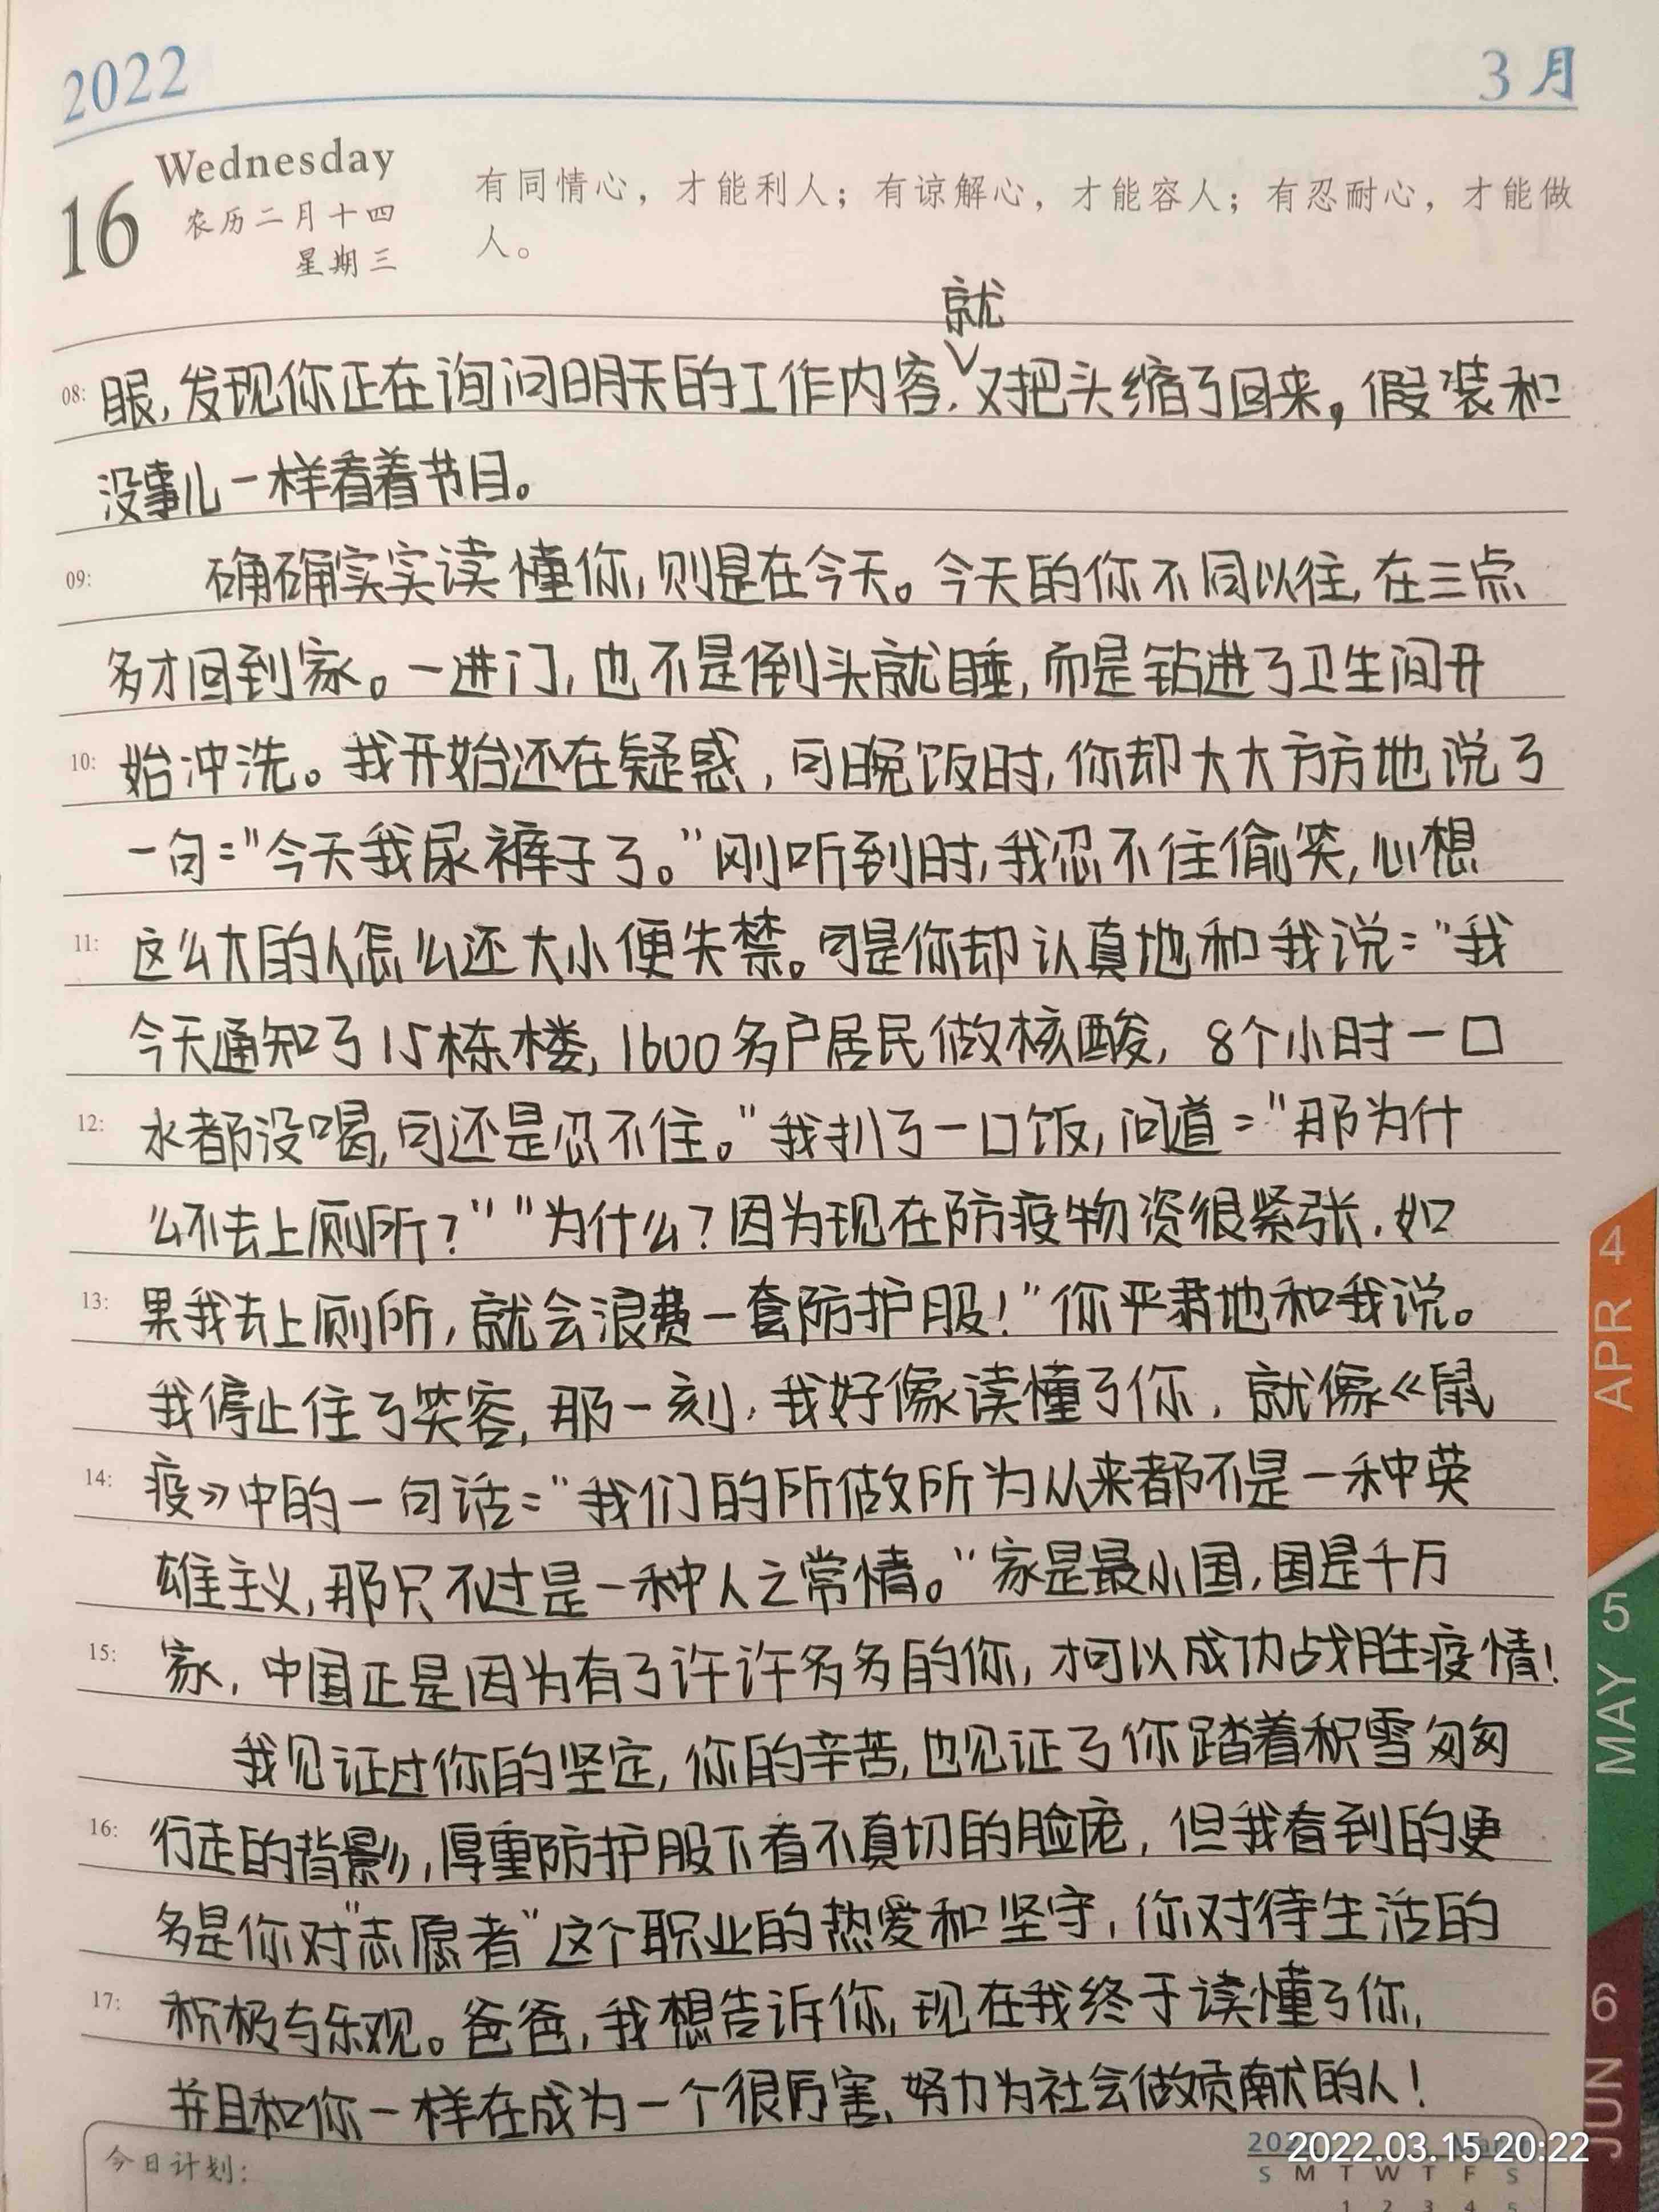 2022
3月
16
Wednesday
农历二月十四
星期三
有同情心，才能利人；有谅解心，才能容人；有忍耐心，才能做
人。
就
08: 眼，发现你正在询问明天的工作内容，又把头缩了回来，假装和
没事儿一样看着节目。
09: 确确实实读懂你，则是在今天。今天的你不同以往，在三点
多才回到家。一进门，也不是倒头就睡，而是钻进了卫生间开
10: 始冲洗。我开始还在疑惑，可晚饭时，你却大大方方地说了
一句："今天我尿裤子了。"刚听到时，我忍不住偷笑，心想
11: 这么大的人怎么还大小便失禁。可是你却认真地和我说："我
今天通知了15栋楼，1600多户居民做核酸，8个小时一口
12: 水都没喝，可还是忍不住。"我扒了一口饭，问道："那为什
么不去上厕所？""为什么？因为现在防疫物资很紧张，如
13: 果我去上厕所，就会浪费一套防护服！"你严肃地和我说。
我停止住了笑容，那一刻，我好像读懂了你，就像《鼠
14: 疫》中的一句话："我们的所做所为从来都不是一种英
雄主义，那只不过是一种人之常情。"家是最小国，国是千万
15: 家，中国正是因为有了许许多多的你，才可以成功战胜疫情！
我见证过你的坚定，你的辛苦，也见证了你踏着积雪匆匆
16: 行走的背影，厚重防护服下看不真切的脸庞，但我看到的更
多是你对"志愿者"这个职业的热爱和坚守，你对待生活的
17: 积极与乐观。爸爸，我想告诉你，现在我终于读懂了你，
并且和你一样在成为一个很厉害、努力为社会做贡献的人！
今日计划：
2022.03.15 20:22
S M T W T F S
1 2 3 4 5
APR 4
MAY 5
JUN 6